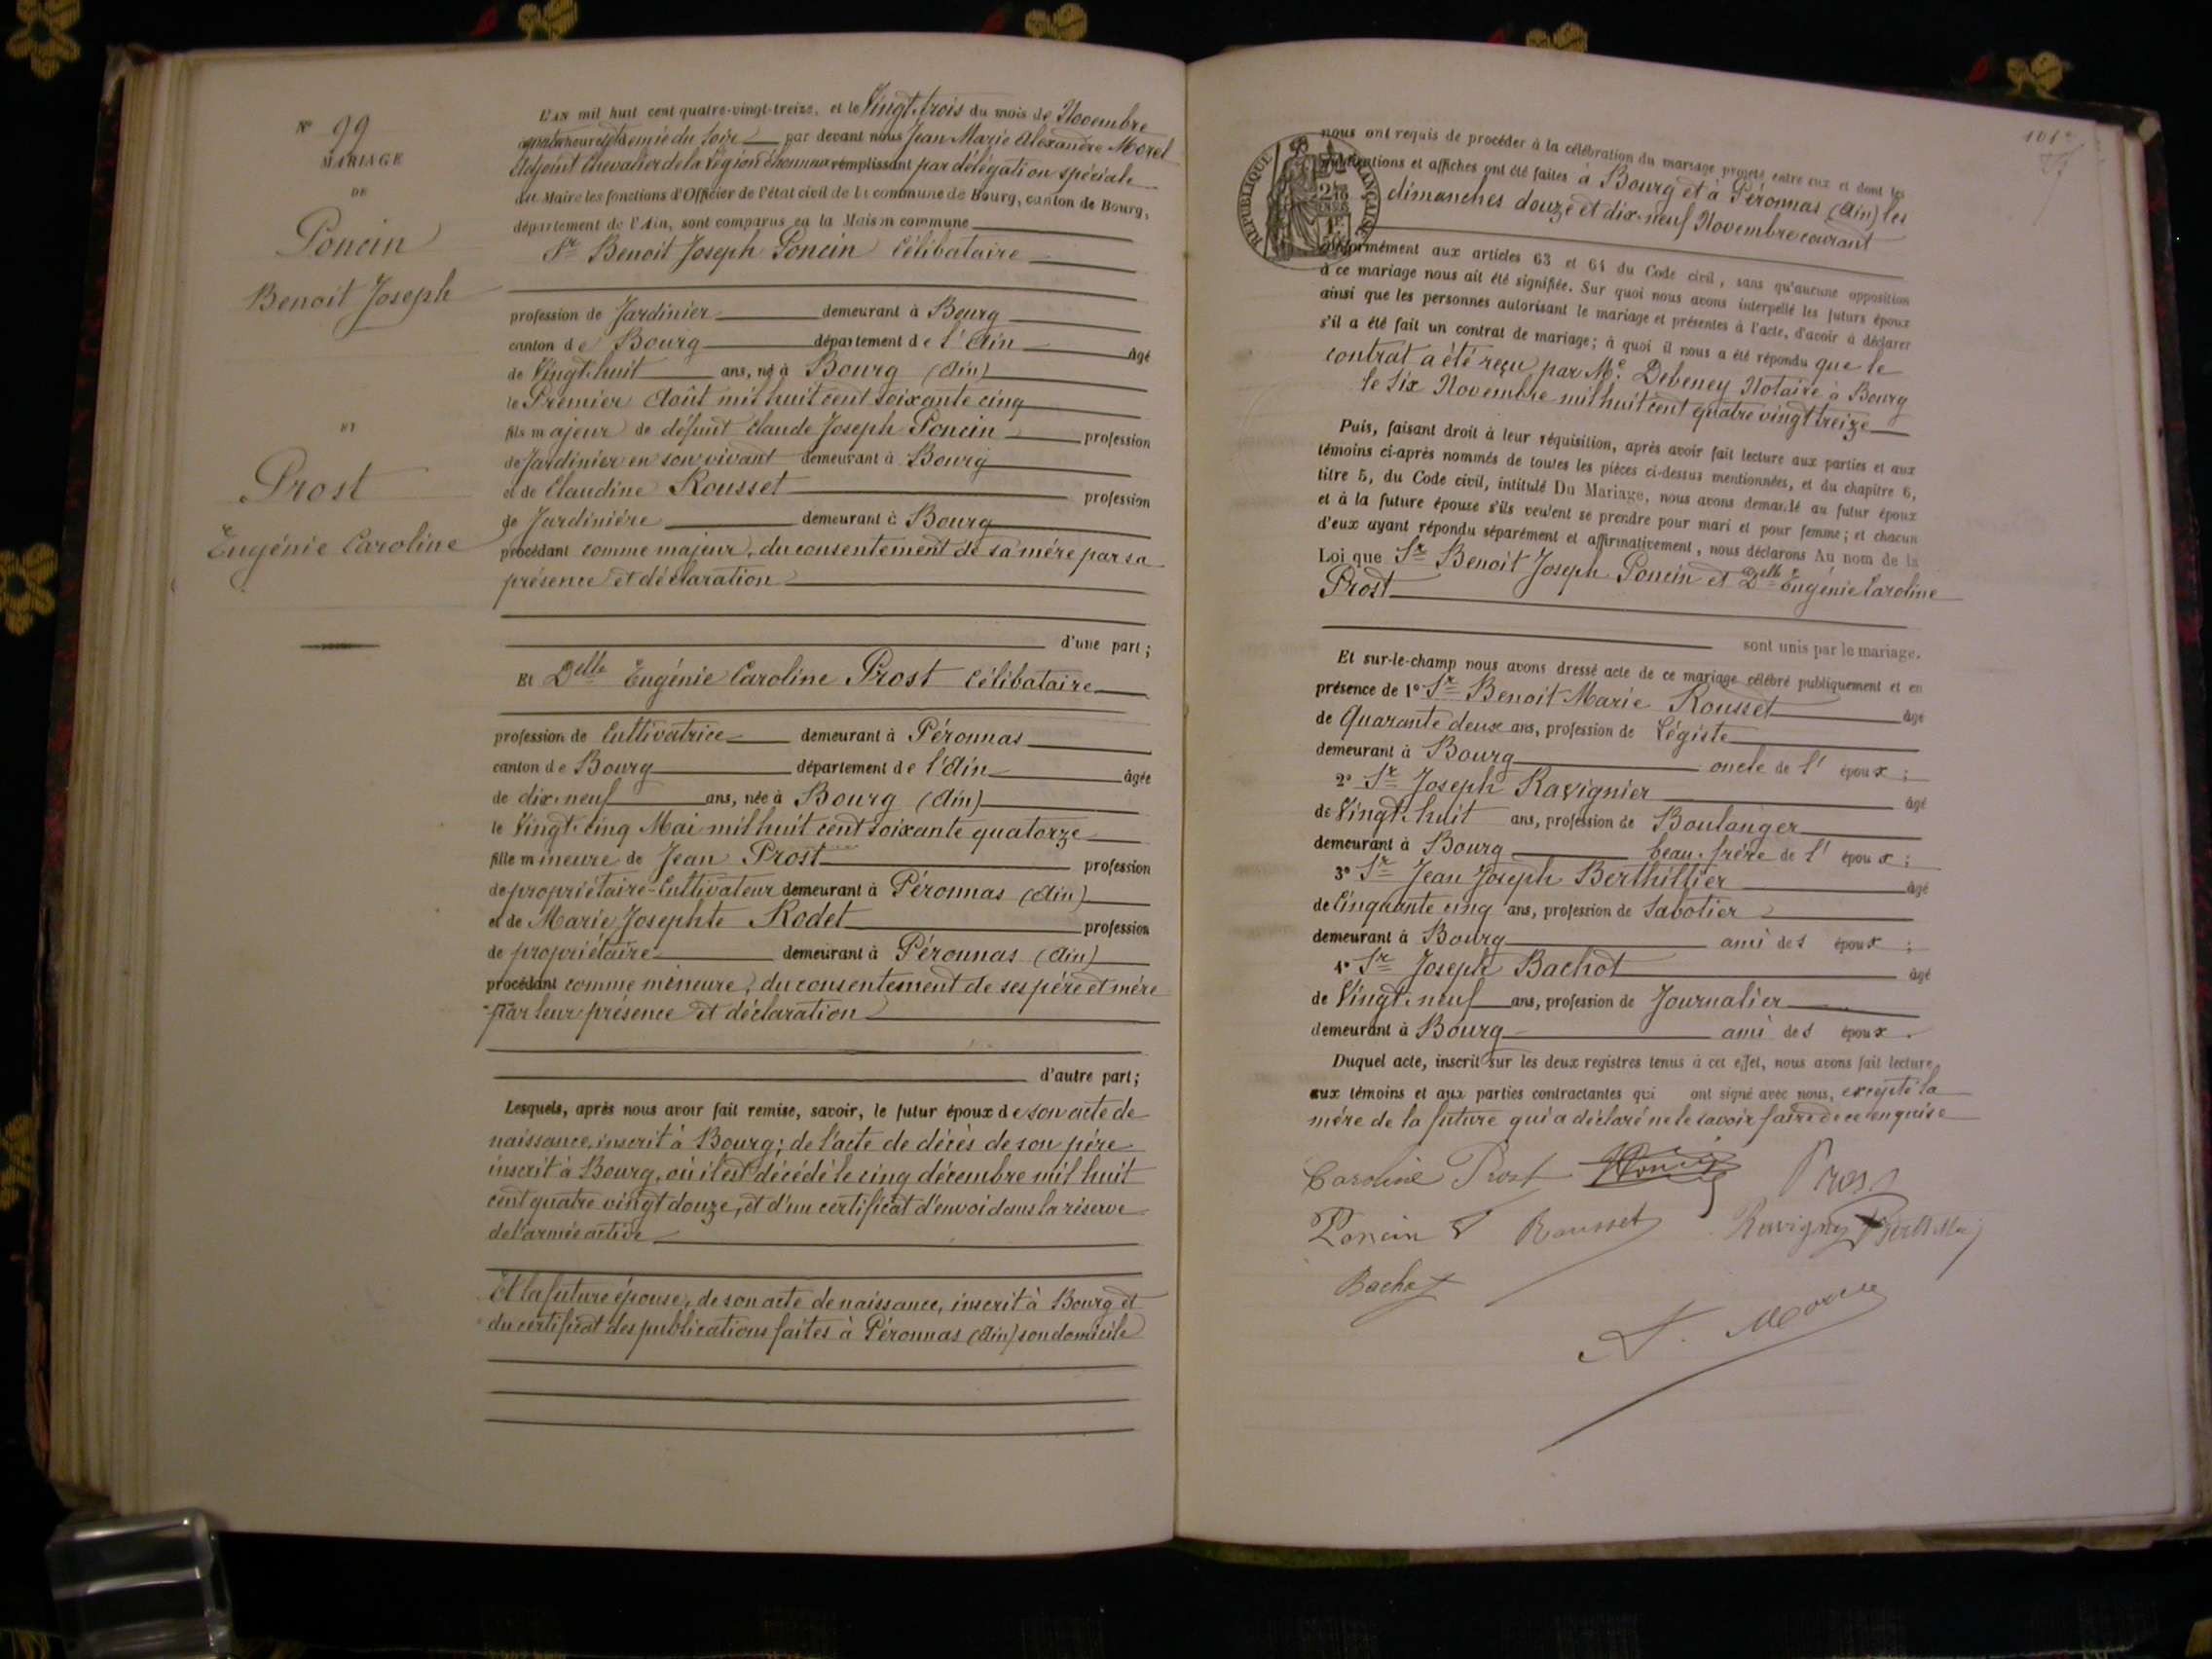 N° 99
MARIAGE
DE
Poncin
Benoit Joseph
ET
Prost
Eugénie Caroline
L'AN mil huit cent quatre-vingt-treize, et le Vingt trois du mois de Novembre
à quatre heures et demie du soir par devant nous Jean Marie Alexandre Morel
Adjoint Chevalier de la Légion d'honneur remplissant par délégation spéciale
du Maire les fonctions d'Officier de l'état civil de la commune de Bourg, canton de Bourg,
département de l'Ain, sont comparus en la Maison commune
Sr Benoit Joseph Poncin célibataire
profession de Jardinier demeurant à Bourg
canton de Bourg département de l'Ain âgé
de Vingt huit ans, né à Bourg (Ain)
le Premier Août mil huit cent soixante cinq
fils majeur de défunt Claude Joseph Poncin profession
de Jardinier en son vivant demeurant à Bourg
et de Claudine Rousset profession
de Jardinière demeurant à Bourg
procédant comme majeur, du consentement de sa mère par sa
présence et déclaration
d'une part ;
Et Delle Eugénie Caroline Prost célibataire
profession de Cultivatrice demeurant à Péronnas
canton de Bourg département de l'Ain âgée
de dix-neuf ans, née à Bourg (Ain)
le Vingt-cinq Mai mil huit cent soixante quatorze
fille mineure de Jean Prost profession
de propriétaire-Cultivateur demeurant à Péronnas (Ain)
et de Marie Josephte Rodet profession
de propriétaire demeurant à Péronnas (Ain)
procédant comme mineure, du consentement de ses père et mère
par leur présence et déclaration
d'autre part ;
Lesquels, après nous avoir fait remise, savoir, le futur époux de son acte de
naissance, inscrit à Bourg ; de l'acte de décès de son père
inscrit à Bourg, où il est décédé le cinq décembre mil huit
cent quatre vingt douze, et d'un certificat d'envoi dans la réserve
de l'armée active
Et la future épouse, de son acte de naissance, inscrit à Bourg et
du certificat des publications faites à Péronnas (Ain) son domicile
101
RÉPUBLIQUE FRANÇAISE
nous ont requis de procéder à la célébration du mariage projeté entre eux et dont les
publications et affiches ont été faites à Bourg et à Péronnas (Ain) les
dimanches douze et dix-neuf Novembre courant
conformément aux articles 63 et 64 du Code civil, sans qu'aucune opposition
à ce mariage nous ait été signifiée. Sur quoi nous avons interpellé les futurs époux
ainsi que les personnes autorisant le mariage et présentes à l'acte, d'avoir à déclarer
s'il a été fait un contrat de mariage ; à quoi il nous a été répondu que le
contrat a été reçu par Me Debeney Notaire à Bourg
le Six Novembre mil huit cent quatre vingt treize
Puis, faisant droit à leur réquisition, après avoir fait lecture aux parties et aux
témoins ci-après nommés de toutes les pièces ci-dessus mentionnées, et du chapitre 6,
titre 5, du Code civil, intitulé Du Mariage, nous avons demandé au futur époux
et à la future épouse s'ils veulent se prendre pour mari et pour femme ; et chacun
d'eux ayant répondu séparément et affirmativement, nous déclarons Au nom de la
Loi que Sr Benoit Joseph Poncin et Delle Eugénie Caroline
Prost
sont unis par le mariage.
Et sur-le-champ nous avons dressé acte de ce mariage célébré publiquement et en
présence de 1° Sr Benoit Marie Rousset âgé
de Quarante deux ans, profession de Légiste
demeurant à Bourg oncle de l'époux ;
2° Sr Joseph Ravignier âgé
de Vingt-huit ans, profession de Boulanger
demeurant à Bourg beau-frère de l'époux ;
3° Sr Jean Joseph Berthillier âgé
de Cinquante cinq ans, profession de Sabotier
demeurant à Bourg ami des époux ;
4° Sr Joseph Bachot âgé
de Vingt-neuf ans, profession de Journalier
demeurant à Bourg ami des époux.
Duquel acte, inscrit sur les deux registres tenus à cet effet, nous avons fait lecture
aux témoins et aux parties contractantes qui ont signé avec nous, excepté la
mère de la future qui a déclaré ne le savoir faire de ce enquise
Caroline Prost Prost
Poncin Rousset
Bachot
A. Morel